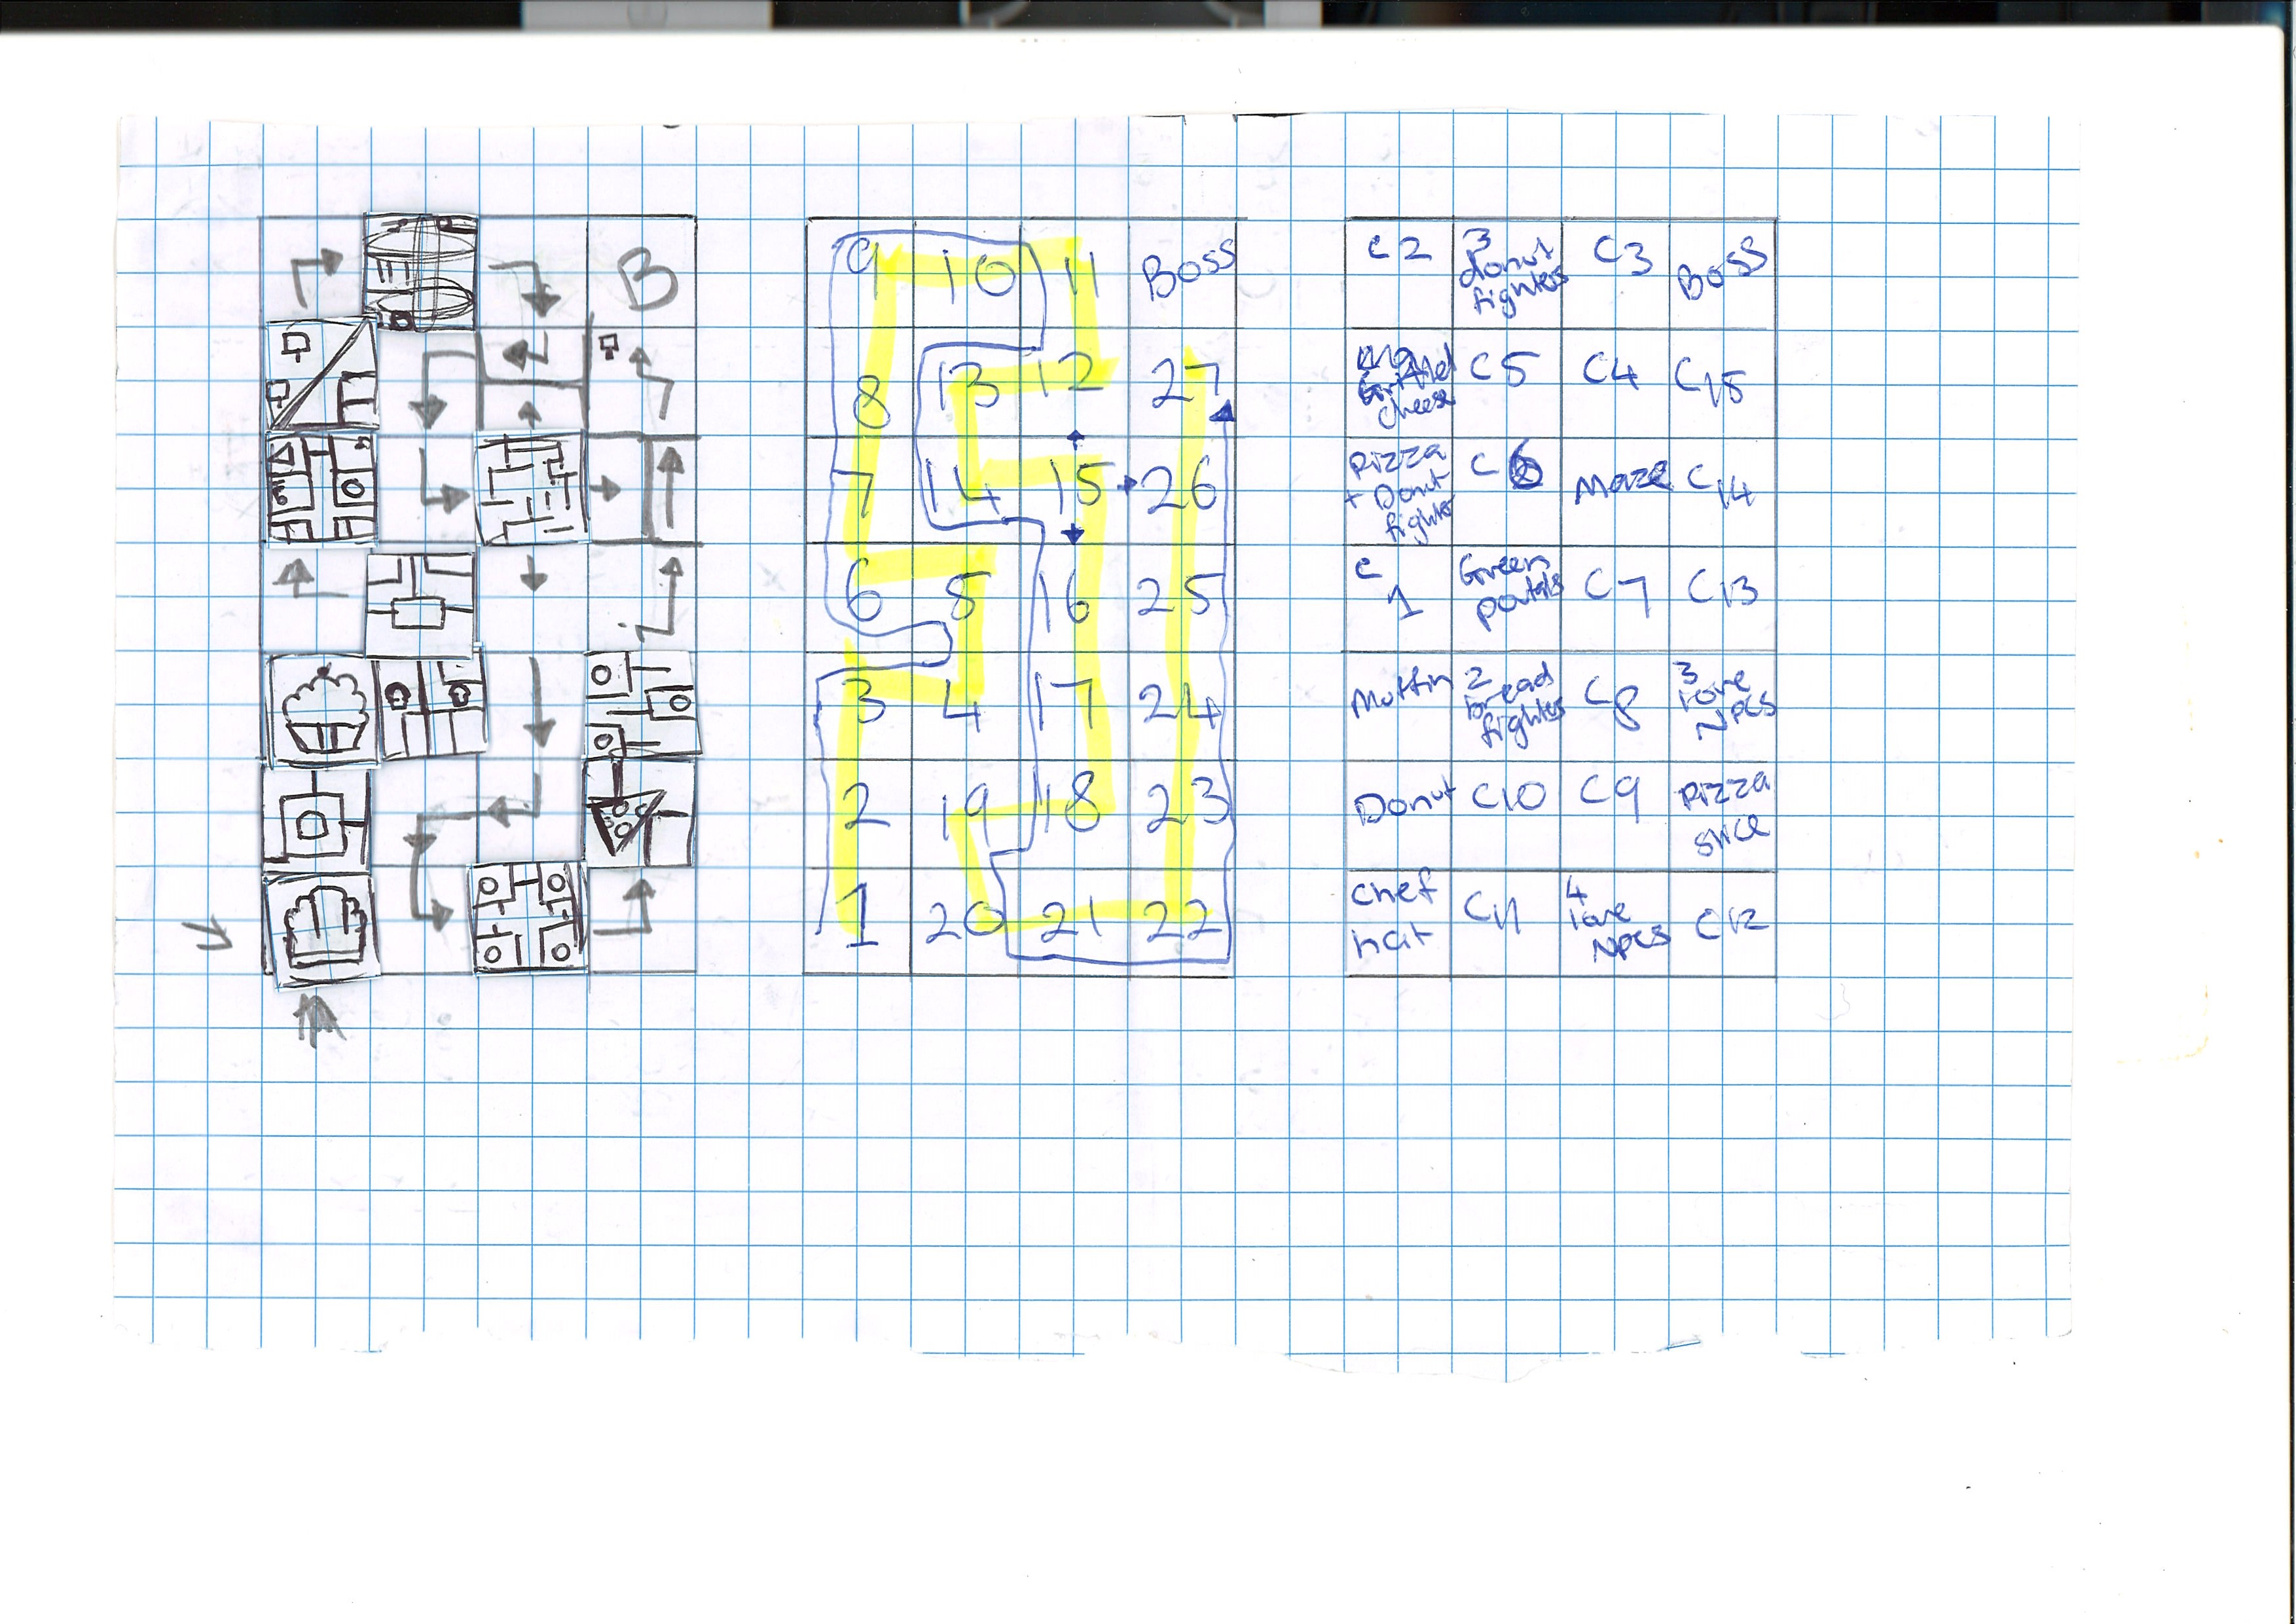 B
9 10 11 Boss
8 13 12 27
7 14 15 26
6 5 16 25
3 4 17 24
2 19 18 23
1 20 21 22
C2
3
donut
fighters
C3
Boss
Grilled
cheese
C5
C4
C15
Pizza
+ Donut
fighter
C6
Maze
C14
C
1
Green
portals
C7
C13
Muffin
2
bread
fighters
C8
3
lone
NPCs
Donut
C10
C9
Pizza
slice
chef
hat
C11
4
lone
NPCs
C12